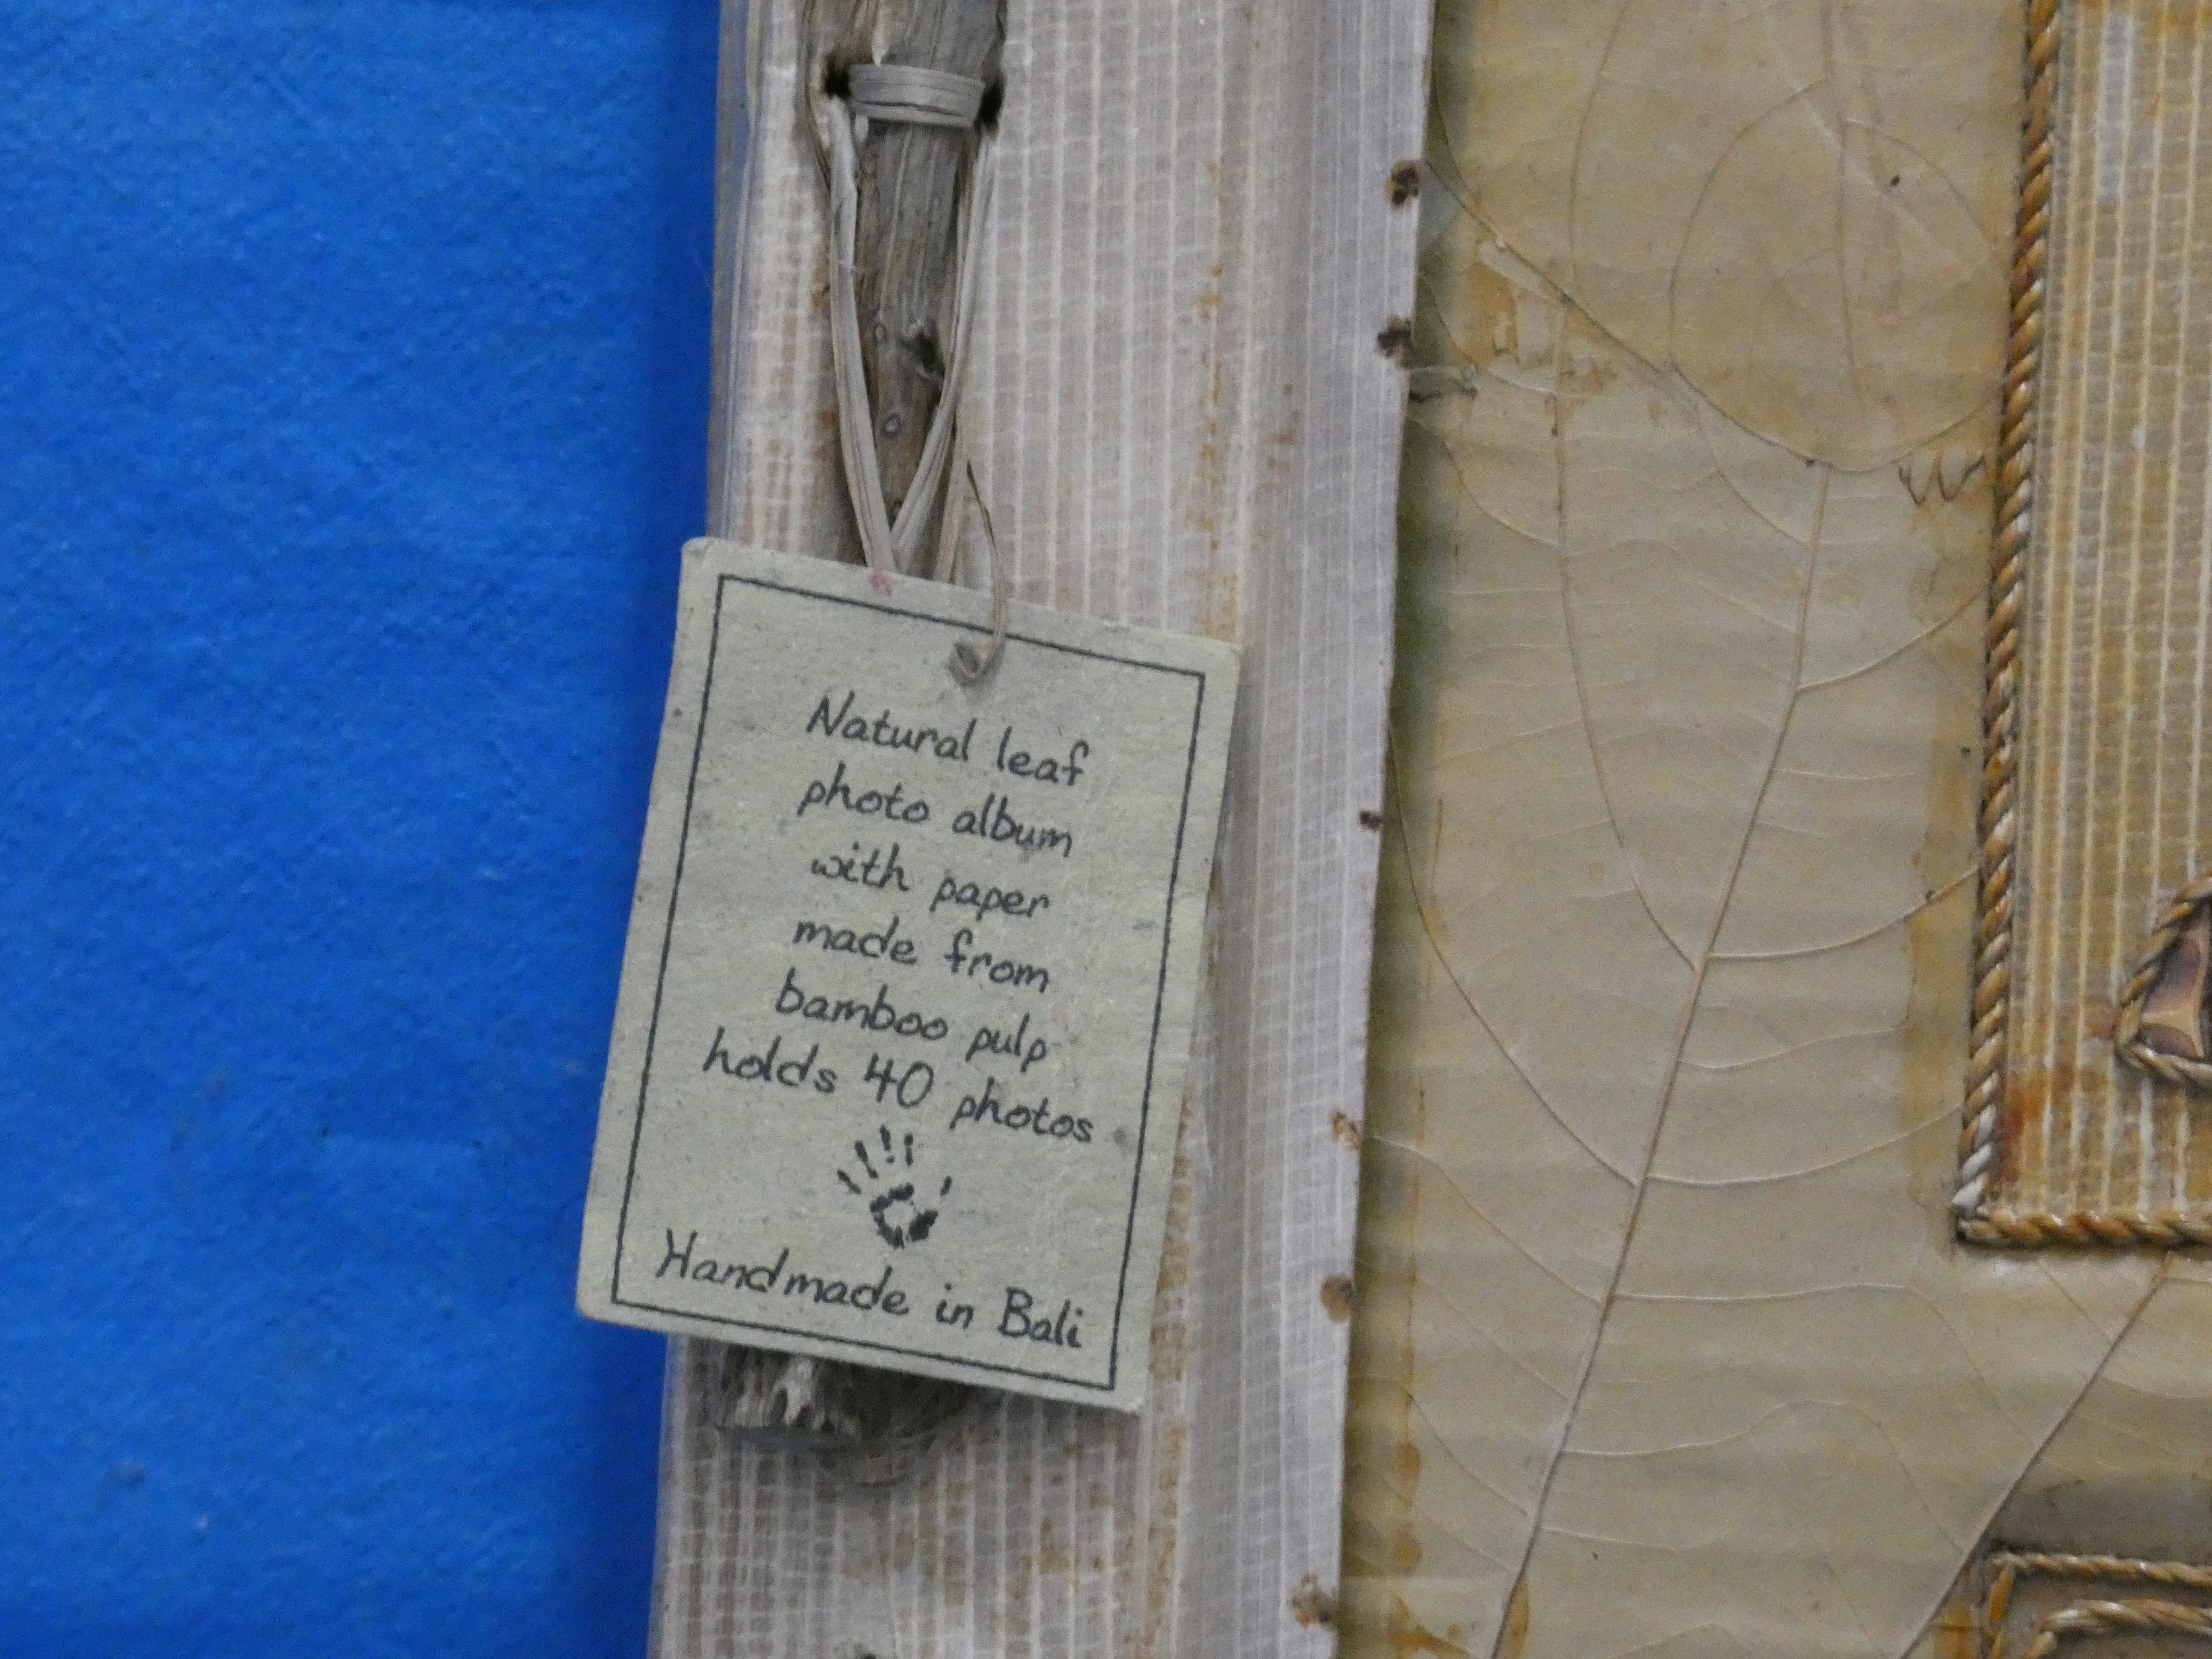 Natural leaf
photo album
with paper
made from
bamboo pulp
holds 40 photos
Handmade in Bali